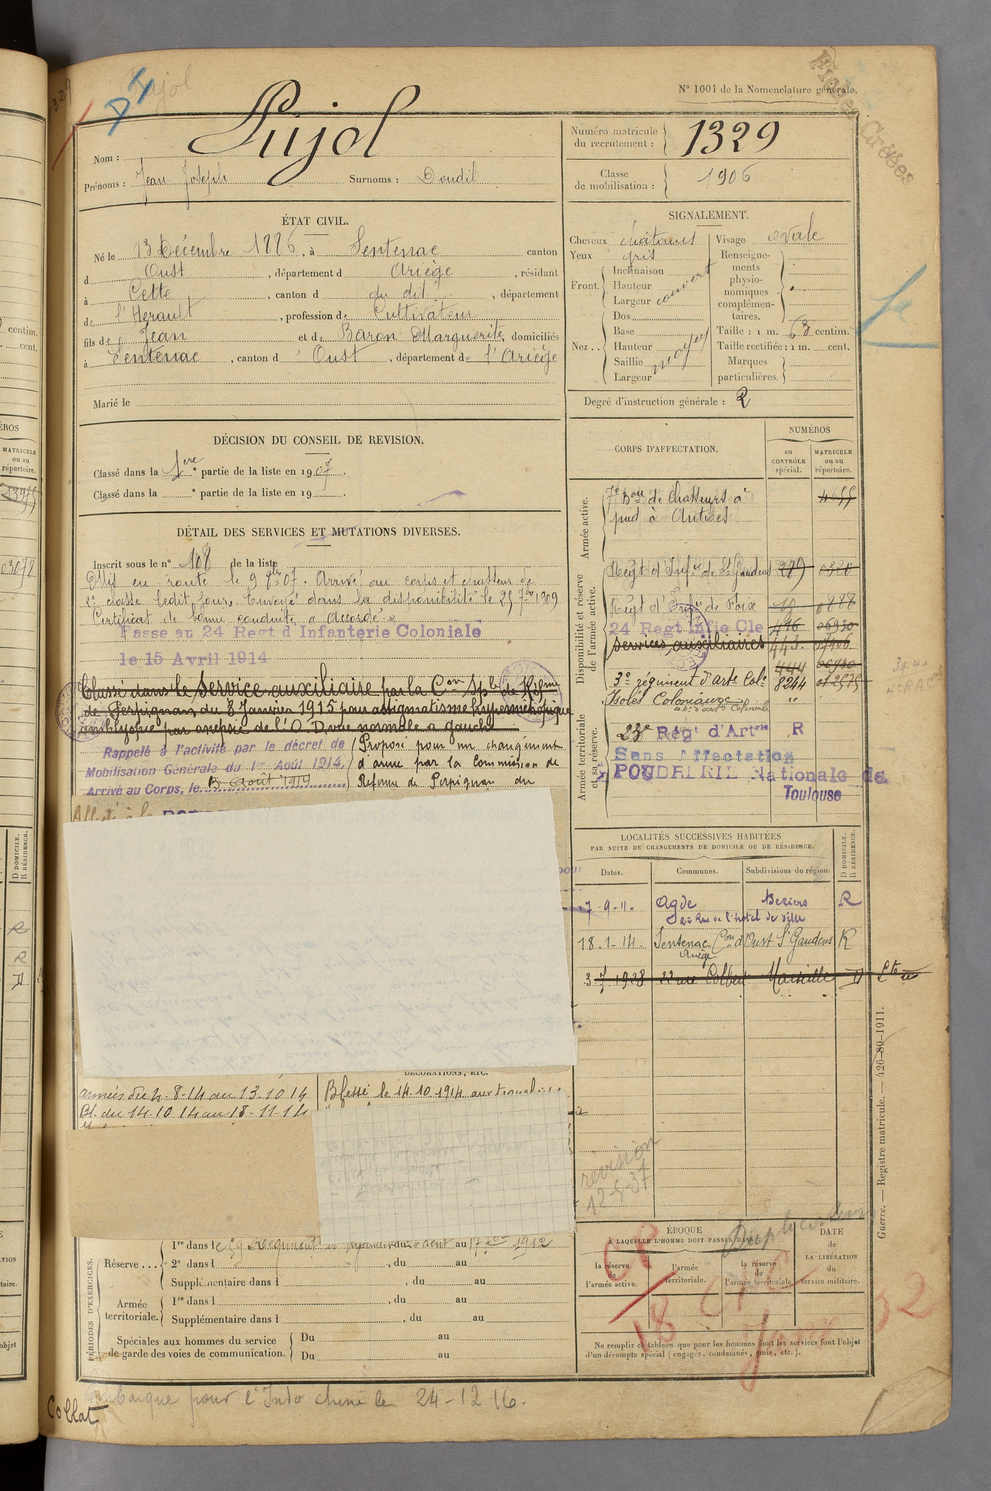 Pujol
N° 1001 de la Nomenclature générale.
Nom : Pujol
Prénoms : Jean Joseph Surnoms : Doudil
Numéro matricule du recrutement : 1329
Classe de mobilisation : 1906
ÉTAT CIVIL.
Né le 13 Décembre 1886, à Sentenac canton
d Oust, département d Ariège, résidant
à Cette, canton d du dit, département
de l'Hérault, profession de Cultivateur
fils de Jean et de Baron Marguerite, domiciliés
à Sentenac, canton d Oust, département de l'Ariège
Marié le
SIGNALEMENT.
Cheveux châtains
Yeux gris
Front. Inclinaison
Hauteur
Largeur couvert
Nez.. Dos
Base
Hauteur
Saillie moyen
Largeur
Visage ovale
Renseignements physionomiques complémentaires.
Taille : 1 m. 63 centim.
Taille rectifiée : 1 m. cent.
Marques particulières.
Degré d'instruction générale : 2
DÉCISION DU CONSEIL DE REVISION.
Classé dans la 1ere partie de la liste en 1907.
Classé dans la e partie de la liste en 19
DÉTAIL DES SERVICES ET MUTATIONS DIVERSES.
Inscrit sous le n° 108 de la liste
Mis en route le 9 8bre 07. Arrivé au corps et chasseur de
2e classe ledit jour. Envoyé dans la disponibilité le 25 7bre 1909
Certificat de bonne conduite a Accordé.
Passe au 24 Regt d'Infanterie Coloniale
le 15 Avril 1914
Classé dans le Service auxiliaire par la Con Sple de Réfme
de Perpignan, du 8 Janvier 1915 pour astigmatisme hypermétropique
amblyopie par anopsie de l'O.D. vue normale à gauche
Rappelé à l'activité par le décret de
Mobilisation Générale du 1er Août 1914.
Arrivé au Corps, le 5 Août 1914
Proposé pour un changement
d'arme par la Commission de
Réforme de Perpignan du
CORPS D'AFFECTATION.
NUMÉROS
au CONTRÔLE spécial.
MATRICULE ou au répertoire.
Armée active.
7e Bon de Chasseurs à
pied à Antibes
Disponibilité et réserve de l'armée active.
Régt d'Infie de St Gaudens
Régt d'Infie de Foix
24 Regt Infie Cle
services auxiliaires
3e régiment d'arte Cole 8244
Isolés Coloniaux
Armée territoriale et sa réserve.
23e Régt d'Artrie R
Sans Affectation
POUDRERIE Nationale de
Toulouse
LOCALITÉS SUCCESSIVES HABITÉES
PAR SUITE DE CHANGEMENTS DE DOMICILE OU DE RÉSIDENCE.
Dates. Communes. Subdivisions de région. D DOMICILE. R RÉSIDENCE.
7-9-11. Agde Beziers R
Rue de l'hôtel de ville
18.1-14. Sentenac Con d'Oust St Gaudens R
Ariège
3-7 1928 22 rue Colbert Marseille D
DÉCORATIONS, ETC.
armées du 4-8-14 au 13.10 14
Bl. du 14.10 14 au 18-11 14
Blessé le 14.10.1914
révision
12-5-37
PÉRIODES D'EXERCICES.
Réserve.... 1re dans l
2e dans l , du au
Supplémentaire dans l , du au
Armée territoriale. 1re dans l , du au
Supplémentaire dans l , du au
Spéciales aux hommes du service de garde des voies de communication. Du au
Du au
ÉPOQUE
À LAQUELLE L'HOMME DOIT PASSER DANS :
la réserve de l'armée active.
l'armée territoriale.
la réserve de l'armée territoriale.
DATE de LA LIBÉRATION du service militaire.
Ne remplir ce tableau que pour les hommes dont les services font l'objet
d'un décompte spécial (engagés, condamnés, omis, etc.).
Guerre. — Registre matricule. — 426-80-1911.
Embarque pour l'Indo chine le 24-12 16.
Collat